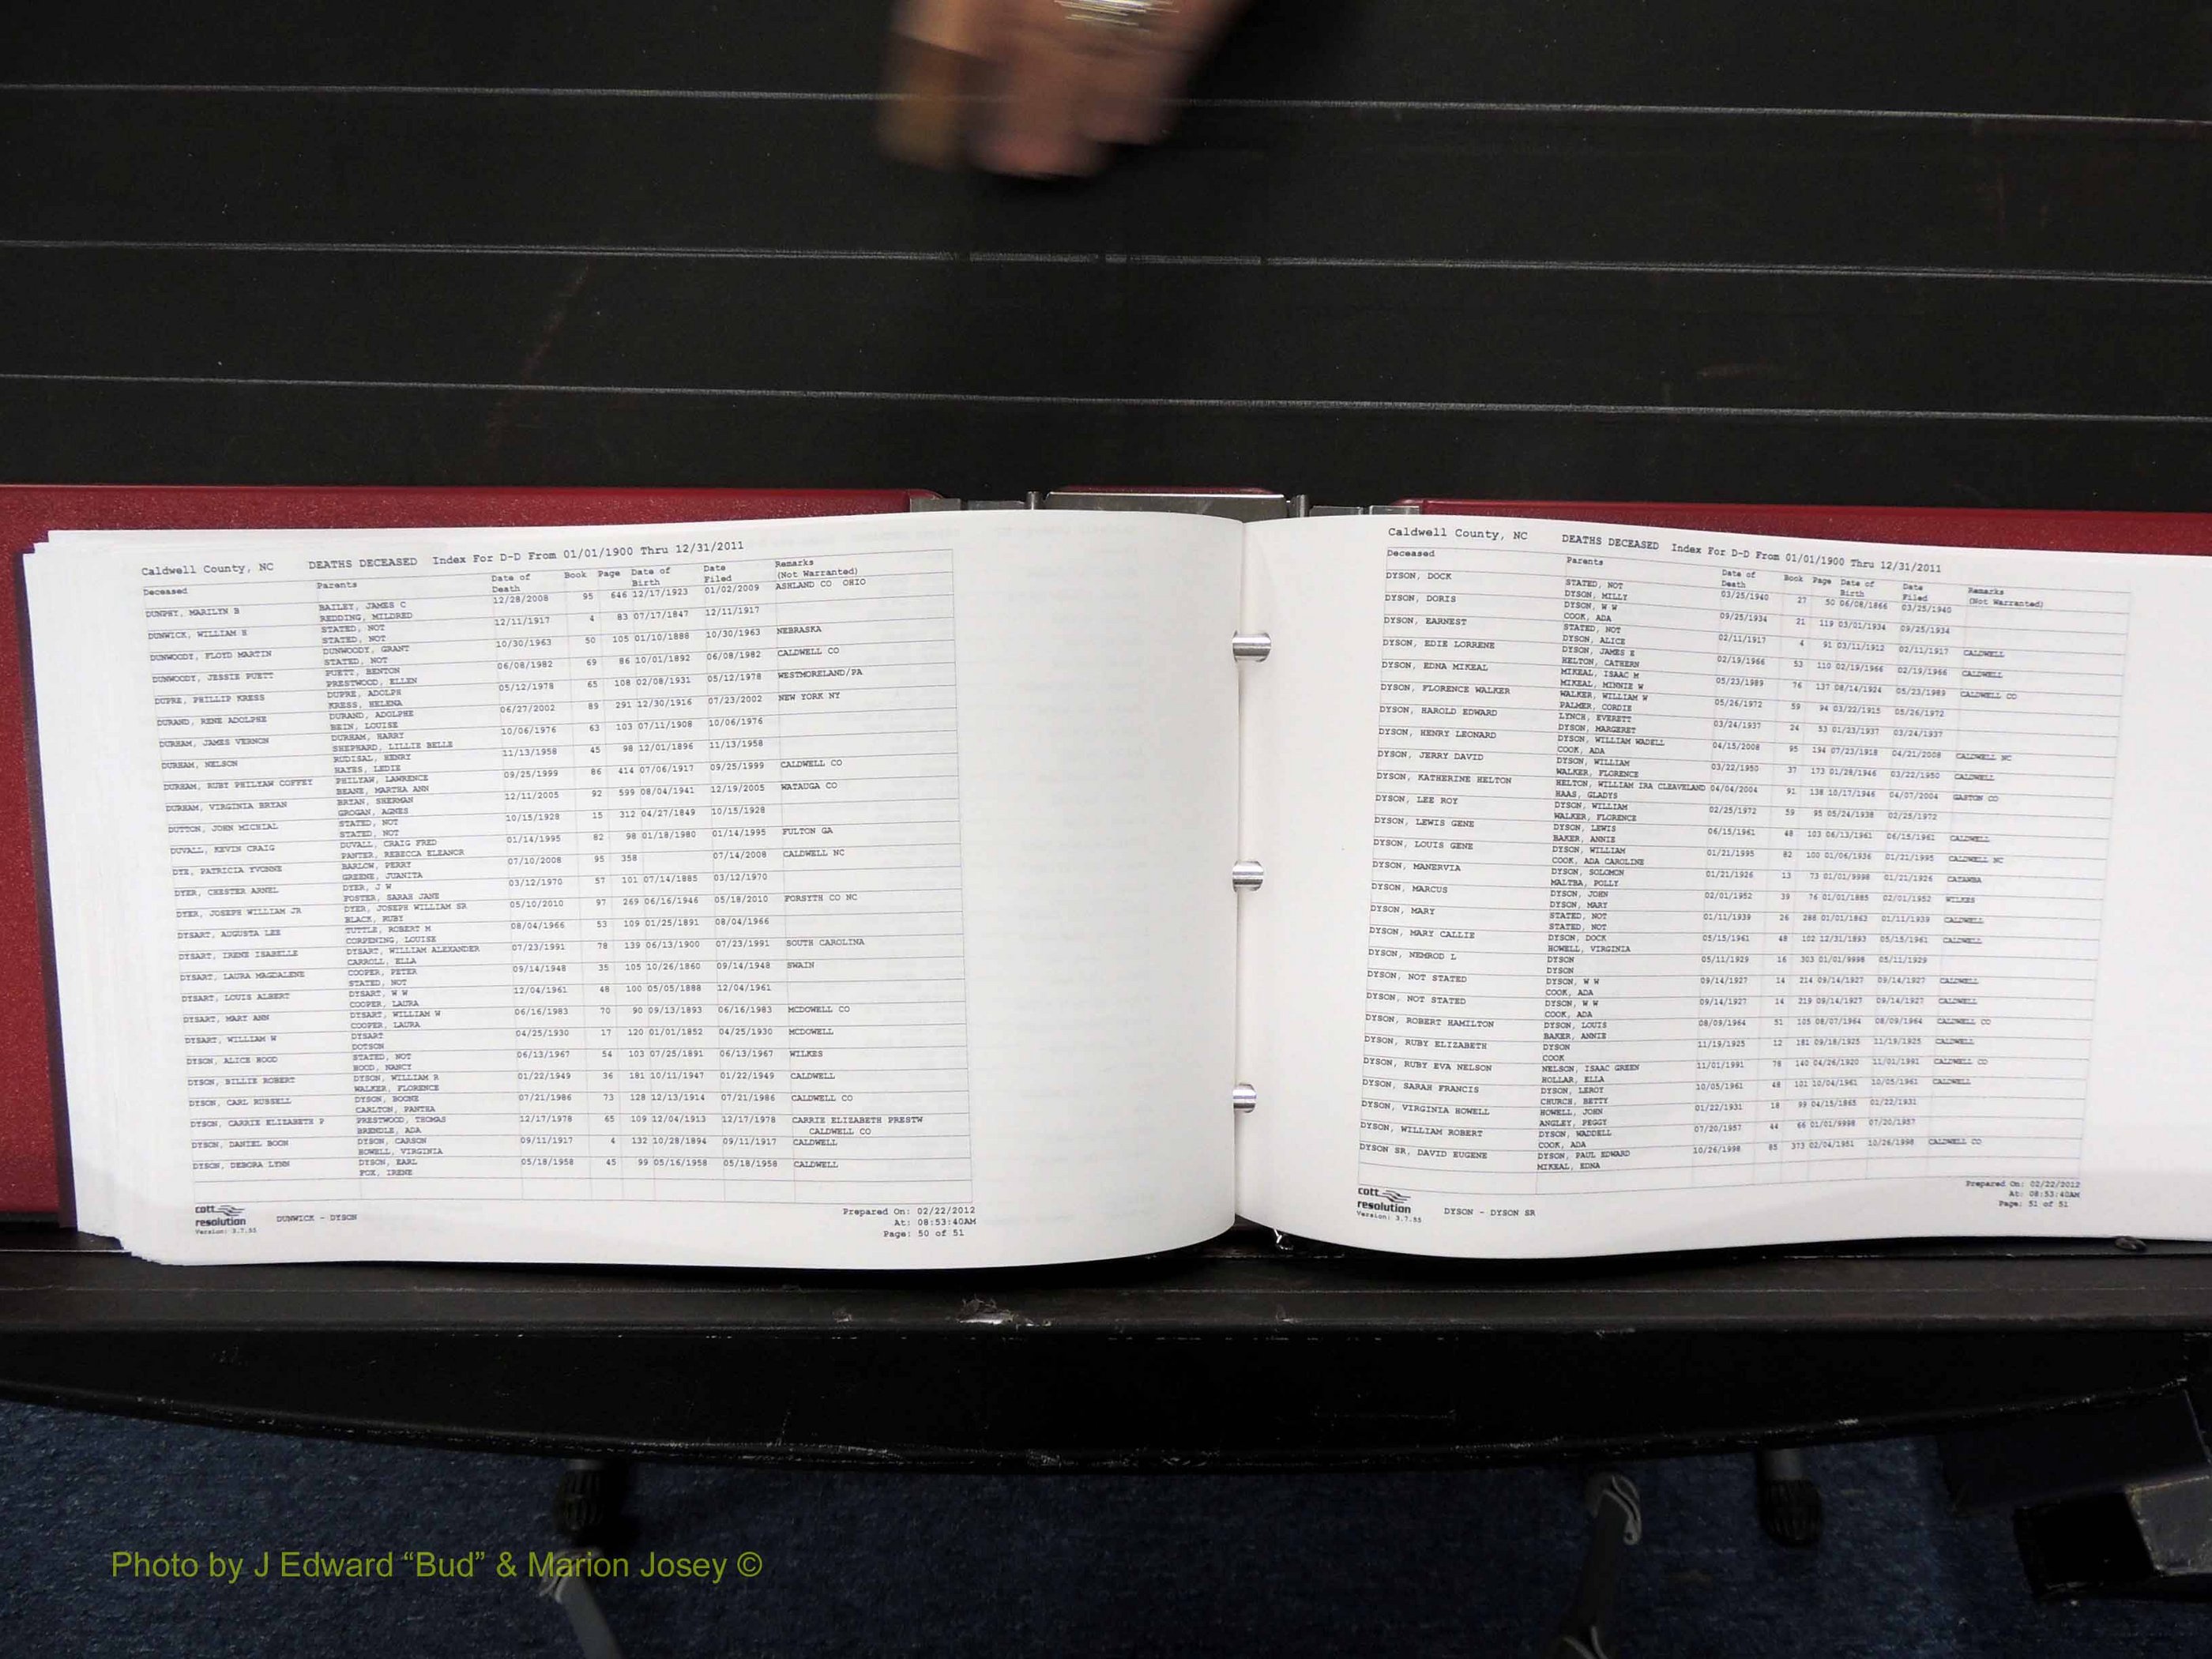 Caldwell County, NC DEATHS DECEASED Index For D-D From 01/01/1900 Thru 12/31/2011
Deceased Parents Date of Death Book Page Date of Birth Date Filed Remarks (Not Warranted)
DUNPHY, MARILYN B BAILEY, JAMES C 12/28/2008 95 646 12/17/1923 01/02/2009 ASHLAND CO OHIO
REDDING, MILDRED
DUNWICK, WILLIAM H STATED, NOT 12/11/1917 4 83 07/17/1847 12/11/1917
STATED, NOT
DUNWOODY, FLOYD MARTIN DUNWOODY, GRANT 10/30/1963 50 105 01/10/1888 10/30/1963 NEBRASKA
STATED, NOT
DUNWOODY, JESSIE PUETT PUETT, BENTON 06/08/1982 69 86 10/01/1892 06/08/1982 CALDWELL CO
PRESTWOOD, ELLEN
DUPRE, PHILLIP KRESS DUPRE, ADOLPH 05/12/1978 65 108 02/08/1931 05/12/1978 WESTMORELAND/PA
KRESS, HELENA
DURAND, RENE ADOLPHE DURAND, ADOLPHE 06/27/2002 89 291 12/30/1916 07/23/2002 NEW YORK NY
BEIN, LOUISE
DURHAM, JAMES VERNON DURHAM, HARRY 10/06/1976 63 103 07/11/1908 10/06/1976
SHEPHARD, LILLIE BELLE
DURHAM, NELSON RUDISAL, HENRY 11/13/1958 45 98 12/01/1896 11/13/1958
HAYES, LEDIE
DURHAM, RUBY PHILYAW COFFEY PHILYAW, LAWRENCE 09/25/1999 86 414 07/06/1917 09/25/1999 CALDWELL CO
BEANE, MARTHA ANN
DURHAM, VIRGINIA BRYAN BRYAN, SHERMAN 12/11/2005 92 599 08/04/1941 12/19/2005 WATAUGA CO
GROGAN, AGNES
DUTTON, JOHN MICHIAL STATED, NOT 10/15/1928 15 312 04/27/1849 10/15/1928
STATED, NOT
DUVALL, KEVIN CRAIG DUVALL, CRAIG FRED 01/14/1995 82 98 01/18/1980 01/14/1995 FULTON GA
PANTER, REBECCA ELEANOR
DYE, PATRICIA YVONNE BARLOW, PERRY 07/10/2008 95 358 07/14/2008 CALDWELL NC
GREENE, JUANITA
DYER, CHESTER ARNEL DYER, J W 03/12/1970 57 101 07/14/1885 03/12/1970
FOSTER, SARAH JANE
DYER, JOSEPH WILLIAM JR DYER, JOSEPH WILLIAM SR 05/10/2010 97 269 06/16/1946 05/18/2010 FORSYTH CO NC
BLACK, RUBY
DYSART, AUGUSTA LEE TUTTLE, ROBERT M 08/04/1966 53 109 01/25/1891 08/04/1966
CORPENING, LOUISE
DYSART, IRENE ISABELLE DYSART, WILLIAM ALEXANDER 07/23/1991 78 139 06/13/1900 07/23/1991 SOUTH CAROLINA
CARROLL, ELLA
DYSART, LAURA MAGDALENE COOPER, PETER 09/14/1948 35 105 10/26/1860 09/14/1948 SWAIN
STATED, NOT
DYSART, LOUIS ALBERT DYSART, W W 12/04/1961 48 100 05/05/1888 12/04/1961
COOPER, LAURA
DYSART, MARY ANN DYSART, WILLIAM W 06/16/1983 70 90 09/13/1893 06/16/1983 MCDOWELL CO
COOPER, LAURA
DYSART, WILLIAM W DYSART 04/25/1930 17 120 01/01/1852 04/25/1930 MCDOWELL
DOTSON
DYSON, ALICE HOOD STATED, NOT 06/13/1967 54 103 07/25/1891 06/13/1967 WILKES
HOOD, NANCY
DYSON, BILLIE ROBERT DYSON, WILLIAM R 01/22/1949 36 181 10/11/1947 01/22/1949 CALDWELL
WALKER, FLORENCE
DYSON, CARL RUSSELL DYSON, BOONE 07/21/1986 73 128 12/13/1914 07/21/1986 CALDWELL CO
CARLTON, PANTHA
DYSON, CARRIE ELIZABETH P PRESTWOOD, THOMAS 12/17/1978 65 109 12/04/1913 12/17/1978 CARRIE ELIZABETH PRESTW
BRENDLE, ADA CALDWELL CO
DYSON, DANIEL BOON DYSON, CARSON 09/11/1917 4 132 10/28/1894 09/11/1917 CALDWELL
HOWELL, VIRGINIA
DYSON, DEBORA LYNN DYSON, EARL 05/18/1958 45 99 05/16/1958 05/18/1958 CALDWELL
FOX, IRENE
cott
resolution
Version: 3.7.55
DUNWICK - DYSON
Prepared On: 02/22/2012
At: 08:53:40AM
Page: 50 of 51
Caldwell County, NC DEATHS DECEASED Index For D-D From 01/01/1900 Thru 12/31/2011
Deceased Parents Date of Death Book Page Date of Birth Date Filed Remarks (Not Warranted)
DYSON, DOCK STATED, NOT 03/25/1940 27 50 06/08/1866 03/25/1940
DYSON, MILLY
DYSON, DORIS DYSON, W W 09/25/1934 21 119 03/01/1934 09/25/1934
COOK, ADA
DYSON, EARNEST STATED, NOT 02/11/1917 4 91 03/11/1912 02/11/1917 CALDWELL
DYSON, ALICE
DYSON, EDIE LORRENE DYSON, JAMES E 02/19/1966 53 110 02/19/1966 02/19/1966 CALDWELL
HELTON, CATHERN
DYSON, EDNA MIKEAL MIKEAL, ISAAC M 05/23/1989 76 137 08/14/1924 05/23/1989 CALDWELL CO
MIKEAL, MINNIE W
DYSON, FLORENCE WALKER WALKER, WILLIAM W 05/26/1972 59 94 03/22/1915 05/26/1972
PALMER, CORDIE
DYSON, HAROLD EDWARD LYNCH, EVERETT 03/24/1937 24 53 01/23/1937 03/24/1937
DYSON, MARGERET
DYSON, HENRY LEONARD DYSON, WILLIAM WADELL 04/15/2008 95 194 07/23/1918 04/21/2008 CALDWELL NC
COOK, ADA
DYSON, JERRY DAVID DYSON, WILLIAM 03/22/1950 37 173 01/28/1946 03/22/1950 CALDWELL
WALKER, FLORENCE
DYSON, KATHERINE HELTON HELTON, WILLIAM IRA CLEAVELAND 04/04/2004 91 138 10/17/1946 04/07/2004 GASTON CO
HAAS, GLADYS
DYSON, LEE ROY DYSON, WILLIAM 02/25/1972 59 95 05/24/1938 02/25/1972
WALKER, FLORENCE
DYSON, LEWIS GENE DYSON, LEWIS 06/15/1961 48 103 06/13/1961 06/15/1961 CALDWELL
BAKER, ANNIE
DYSON, LOUIS GENE DYSON, WILLIAM 01/21/1995 82 100 01/06/1936 01/21/1995 CALDWELL NC
COOK, ADA CAROLINE
DYSON, MANERVIA DYSON, SOLOMON 01/21/1926 13 73 01/01/9998 01/21/1926 CATAWBA
MALTBA, POLLY
DYSON, MARCUS DYSON, JOHN 02/01/1952 39 76 01/01/1885 02/01/1952 WILKES
DYSON, MARY
DYSON, MARY STATED, NOT 01/11/1939 26 288 01/01/1863 01/11/1939 CALDWELL
STATED, NOT
DYSON, MARY CALLIE DYSON, DOCK 05/15/1961 48 102 12/31/1893 05/15/1961 CALDWELL
HOWELL, VIRGINIA
DYSON, NEMROD L DYSON 05/11/1929 16 303 01/01/9998 05/11/1929
DYSON
DYSON, NOT STATED DYSON, W W 09/14/1927 14 214 09/14/1927 09/14/1927 CALDWELL
COOK, ADA
DYSON, NOT STATED DYSON, W W 09/14/1927 14 219 09/14/1927 09/14/1927 CALDWELL
COOK, ADA
DYSON, ROBERT HAMILTON DYSON, LOUIS 08/09/1964 51 105 08/07/1964 08/09/1964 CALDWELL CO
BAKER, ANNIE
DYSON, RUBY ELIZABETH DYSON 11/19/1925 12 181 09/18/1925 11/19/1925 CALDWELL
COOK
DYSON, RUBY EVA NELSON NELSON, ISAAC GREEN 11/01/1991 78 140 04/26/1920 11/01/1991 CALDWELL CO
HOLLAR, ELLA
DYSON, SARAH FRANCIS DYSON, LEROY 10/05/1961 48 101 10/04/1961 10/05/1961 CALDWELL
CHURCH, BETTY
DYSON, VIRGINIA HOWELL HOWELL, JOHN 01/22/1931 18 99 04/15/1865 01/22/1931
ANGLEY, PEGGY
DYSON, WILLIAM ROBERT DYSON, WADDELL 07/20/1957 44 66 01/01/9998 07/20/1957
COOK, ADA
DYSON SR, DAVID EUGENE DYSON, PAUL EDWARD 10/26/1998 85 373 02/04/1951 10/26/1998 CALDWELL CO
MIKEAL, EDNA
cott
resolution
Version: 3.7.55
DYSON - DYSON SR
Prepared On: 02/22/2012
At: 08:53:40AM
Page: 51 of 51
Photo by J Edward “Bud” & Marion Josey ©